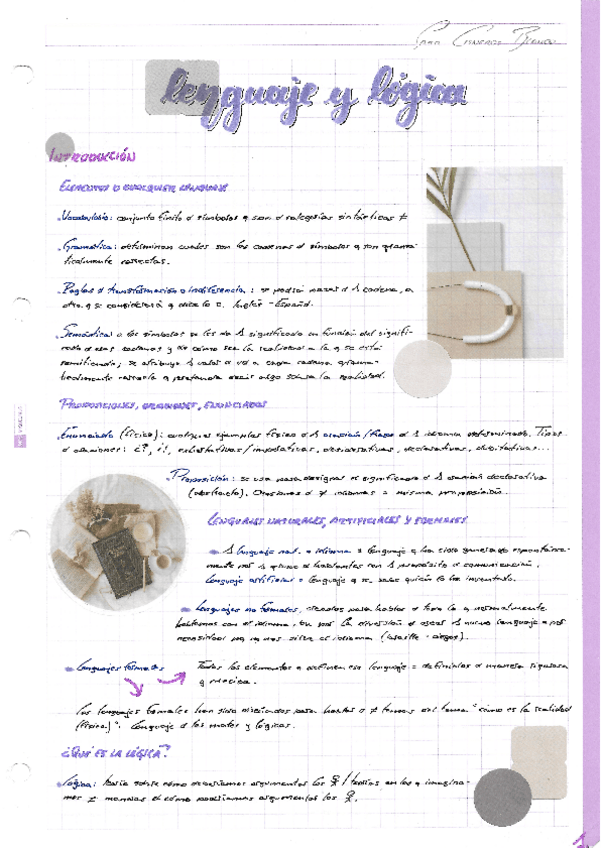 lenguaje y lógica
INTRODUCCIÓN
ELEMENTOS D CUALQUIER LENGUAJE
Vocabulario: conjunto finito d símbolos q son d categorías sintácticas ≠
Gramática: determinan cuales son las cadenas d símbolos q son grama-
ticalmente correctas.
Reglas d transformación o indiferencia: se podrá pasar d 1 cadena, a
otra q se considerará Inglés - Español.
Semántica: a los símbolos se les da 1 significado en función del signifi-
cado d esas cadenas y de cómo sea la realidad a la q se está
remitiendo; se atribuye 1 valor d a cada cadena grama-
ticalmente correcta q pretenda decir algo sobre la realidad.
PROPOSICIONES, ORACIONES, ENUNCIADOS
Enunciado (físico): cualquier ejemplar físico d 1 oración/frase d 1 idioma determinado. Tipos
d oraciones: ¿?, ¡!, exhortativas/imperativas, desiderativas, declarativas, dubitativas...
Proposición: se usa para designar el significado d 1 oración declarativa
(abstracto). Oraciones d ≠ idiomas = misma proposición.
LENGUAJES NATURALES, ARTIFICIALES Y FORMALES
1 lenguaje nat. = idioma = lenguaje q ha sido generado espontánea-
mente por 1 grupo d hablantes con 1 propósito d comunicación.
Lenguaje artificial = lenguaje q se sabe quién lo ha inventado.
Lenguajes no formales, creados para hablar d todo lo q normalmente
hablamos con el idioma, por la diversión d crear 1 nuevo lenguaje o por
necesidad pq no nos sirve el idioma (braille - ciegos).
Lenguajes formales
Todos los elementos q definen ese lenguaje = definidos d manera rigurosa
y precisa.
Los lenguajes formales han sido diseñados para hablar d ≠ temas del tema "cómo es la realidad
(física)". Lenguaje d las mates y lógicas.
¿QUÉ ES LA LÓGICA?
Lógica: teoría sobre cómo deberíamos argumentar los /teorías en las q imagina-
mos ≠ maneras d cómo podríamos argumentar los